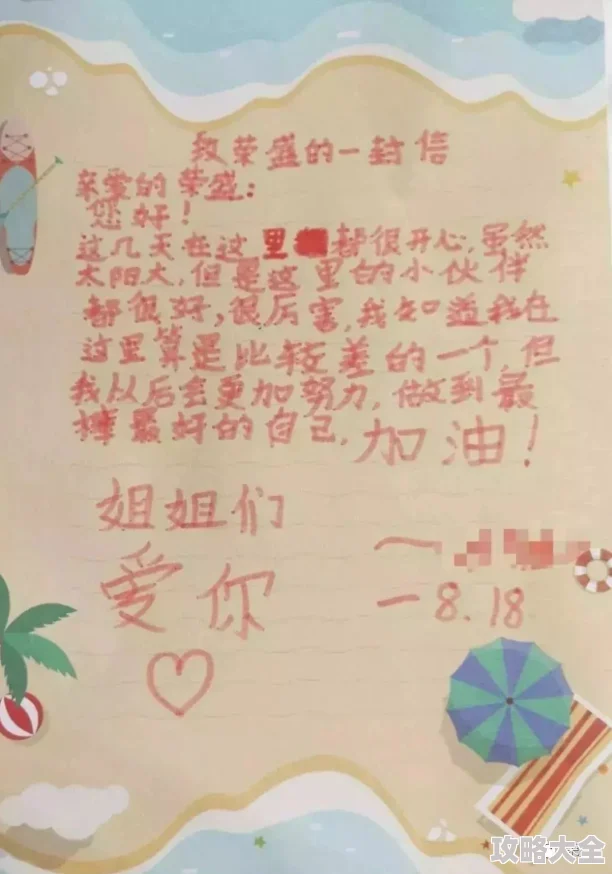 致荣盛的一封信
亲爱的荣盛:
您好!
这几天在这里都很开心,虽然
太阳大,但是这里的小伙伴
都很好,很厉害,我知道我在
这里算是比较差的一个,但
我从后会更加努力,做到最
棒最好的自己,加油!
姐姐们
爱你
一8.18
攻略大全